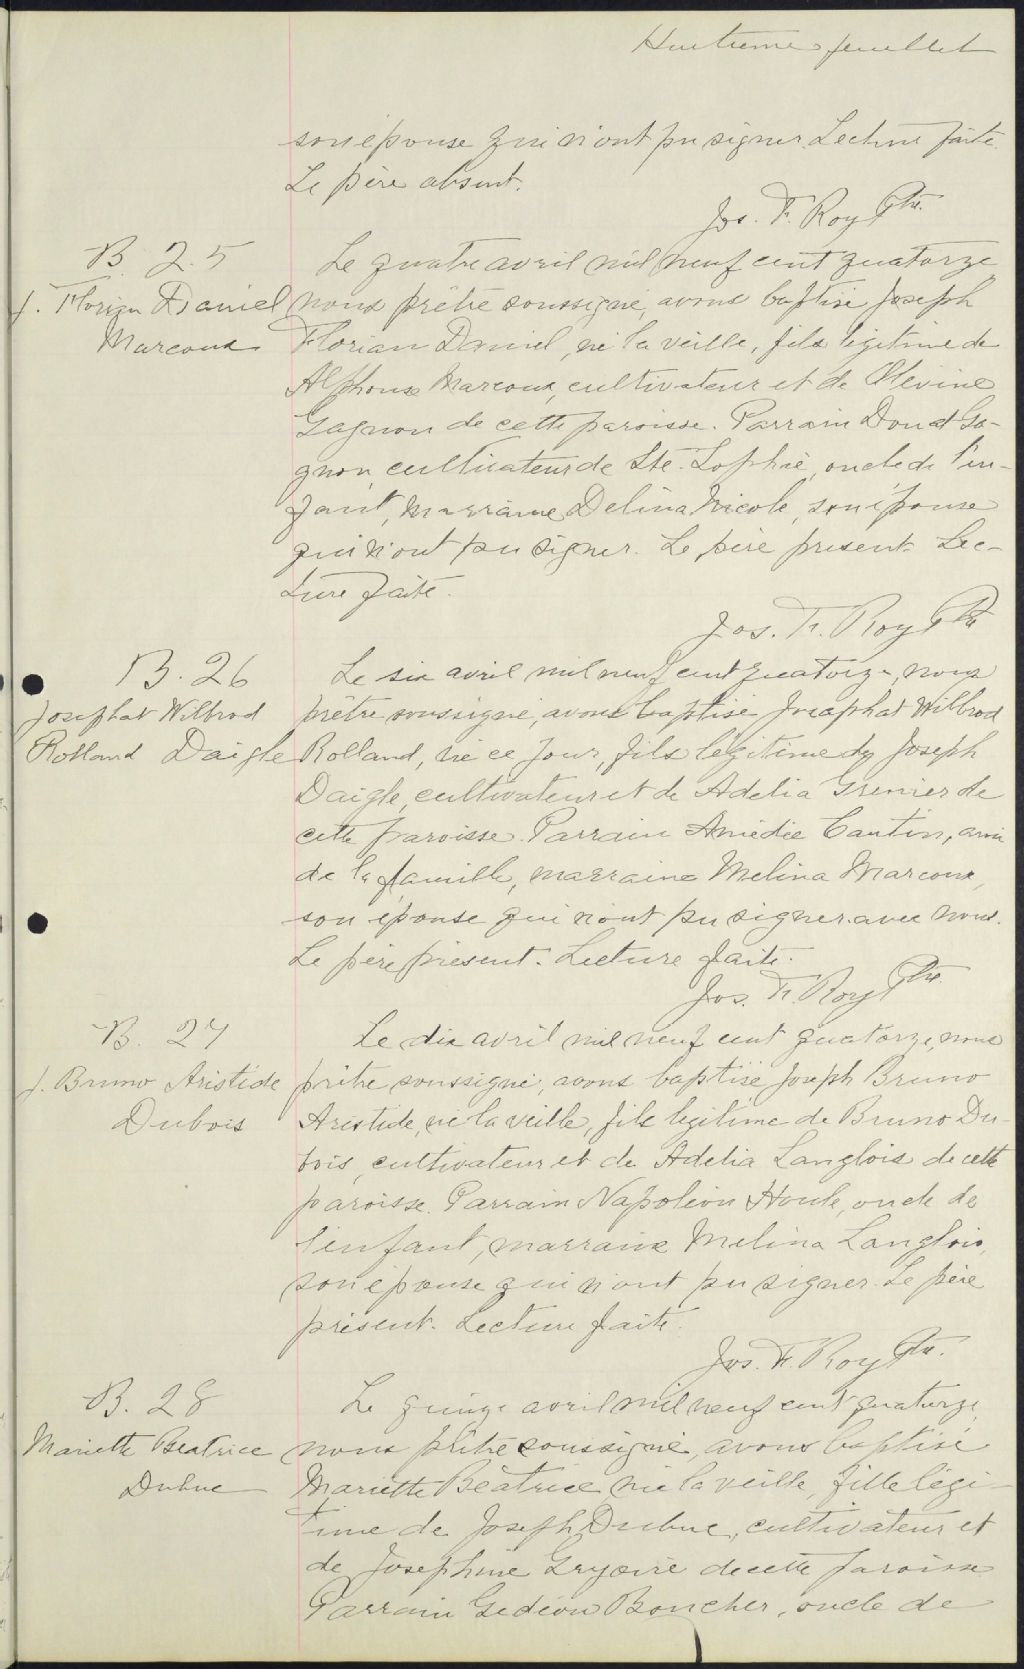 Huitième feuillet
son épouse qui n'ont pu signer. Lecture faite.
Le père absent.
Jos. F. Roy Ptre.
B. 25
J. Florian Daniel
Marcoux
Le quatre avril mil neuf cent quatorze
nous prêtre soussigné, avons baptisé Joseph
Florian Daniel, né la veille, fils légitime de
Alphonse Marcoux, cultivateur et de Olévine
Gagnon de cette paroisse. Parrain Donat Ga-
gnon, cultivateur de Ste. Sophie, oncle de l'en-
fant, marraine Delina Nicole, son épouse
qui n'ont pu signer. Le père présent. Lec-
ture faite.
Jos. F. Roy Ptre
B. 26
Josephat Wilbrod
Rolland Daigle
Le six avril mil neuf cent quatorze, nous
prêtre soussigné, avons baptisé Josaphat Wilbrod
Rolland, né ce jour, fils légitime de Joseph
Daigle, cultivateur et de Adelia Grenier de
cette paroisse. Parrain Amédée Cantin, ami
de la famille, marraine Melina Marcoux,
son épouse qui n'ont pu signer avec nous.
Le père présent. Lecture faite.
Jos. F. Roy Ptre.
B. 27
J. Bruno Aristide
Dubois
Le dix avril mil neuf cent quatorze, nous
prêtre soussigné, avons baptisé Joseph Bruno
Aristide, né la veille, fils légitime de Bruno Du-
bois, cultivateur et de Adelia Langlois de cette
paroisse. Parrain Napoléon Houle, oncle de
l'enfant, marraine Melina Langlois,
son épouse qui n'ont pu signer. Le père
présent. Lecture faite.
Jos. F. Roy Ptre.
B. 28
Mariette Beatrice
Dubuc
Le quinze avril mil neuf cent quatorze,
nous prêtre soussigné, avons baptisé
Mariette Béatrice née la veille, fille légi-
time de Joseph Dubuc, cultivateur et
de Josephine Grégoire de cette paroisse.
Parrain Gedéon Boucher, oncle de